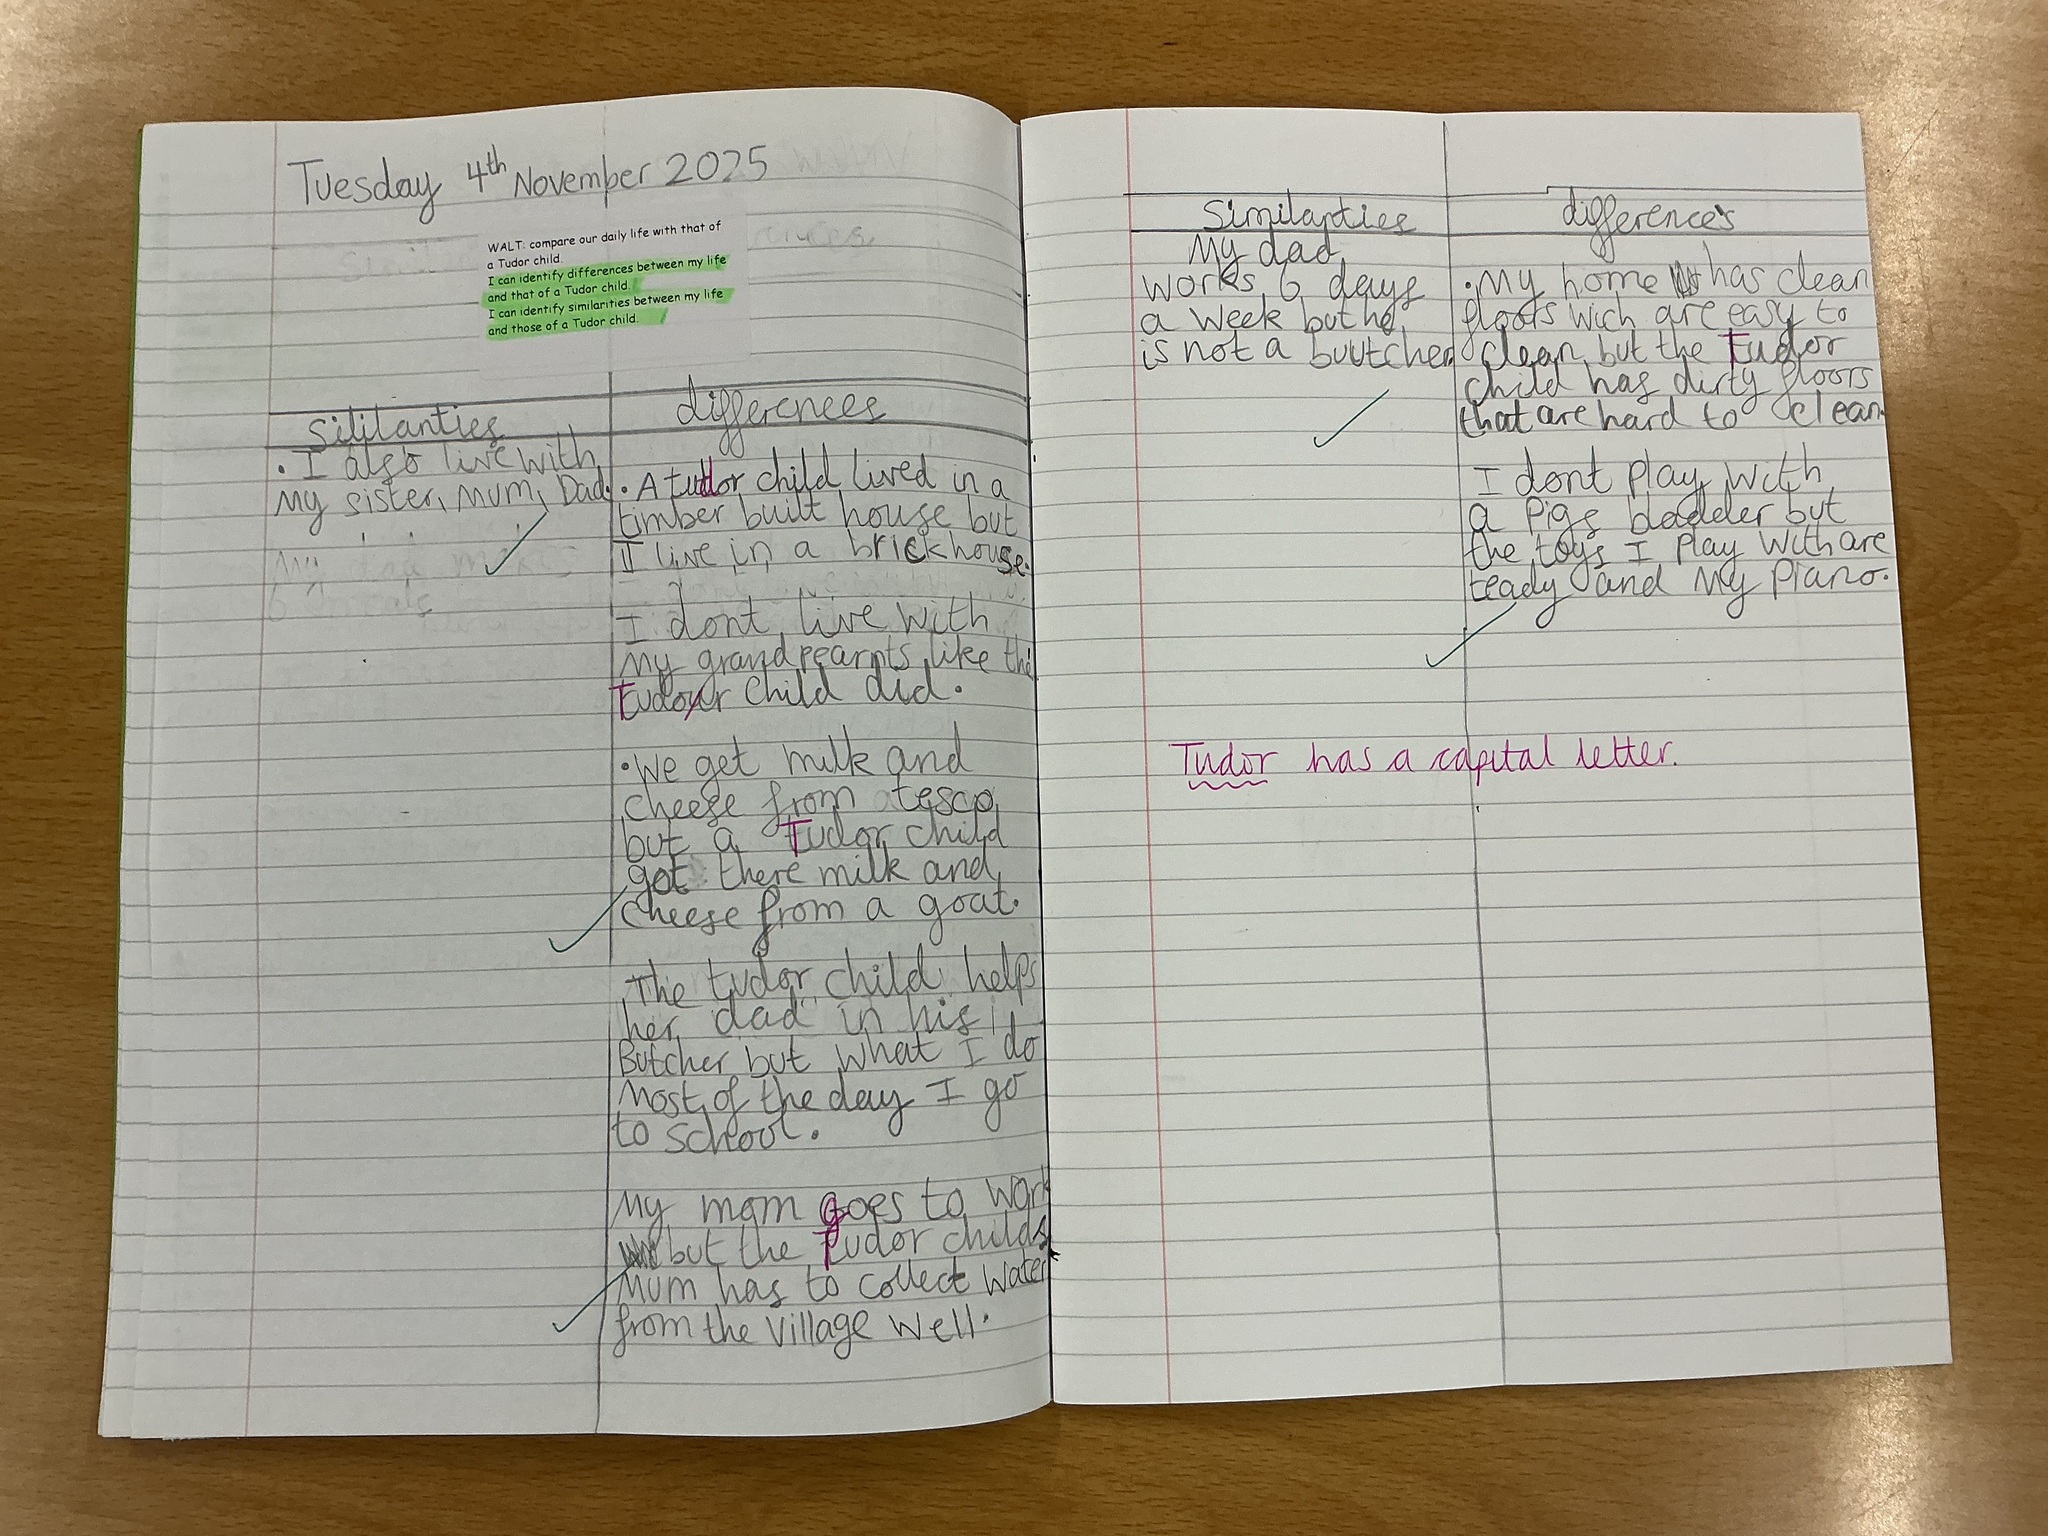 Tuesday 4th November 2025
WALT: compare our daily life with that of
a Tudor child.
I can identify differences between my life
and that of a Tudor child.
I can identify similarities between my life
and those of a Tudor child.
Sililarities
• I also live with
My sister, Mum, Dad.
differences
• A tudor child lived in a
timber built house but
I live in a brick house.
I dont live with
My grandpearnts like the
Tudor child did.
• We get milk and
cheese from tesco
but a Tudor child
got there milk and
cheese from a goat.
The tudor child helps
her dad in his
Butcher but what I do
Most of the day I go
to school.
My mam goes to work
but the Tudor childs
Mum has to collect Water
from the Village Well.
Similarties
My dad
works 6 days
a week but he
is not a buutcher
differences
• My home has clean
floors wich are easy to
clean but the Tudor
child has dirty floors
that are hard to clean.
I dont play with
a Pigs bladder but
the toys I Play With are
teady and My Piano.
Tudor has a capital letter.